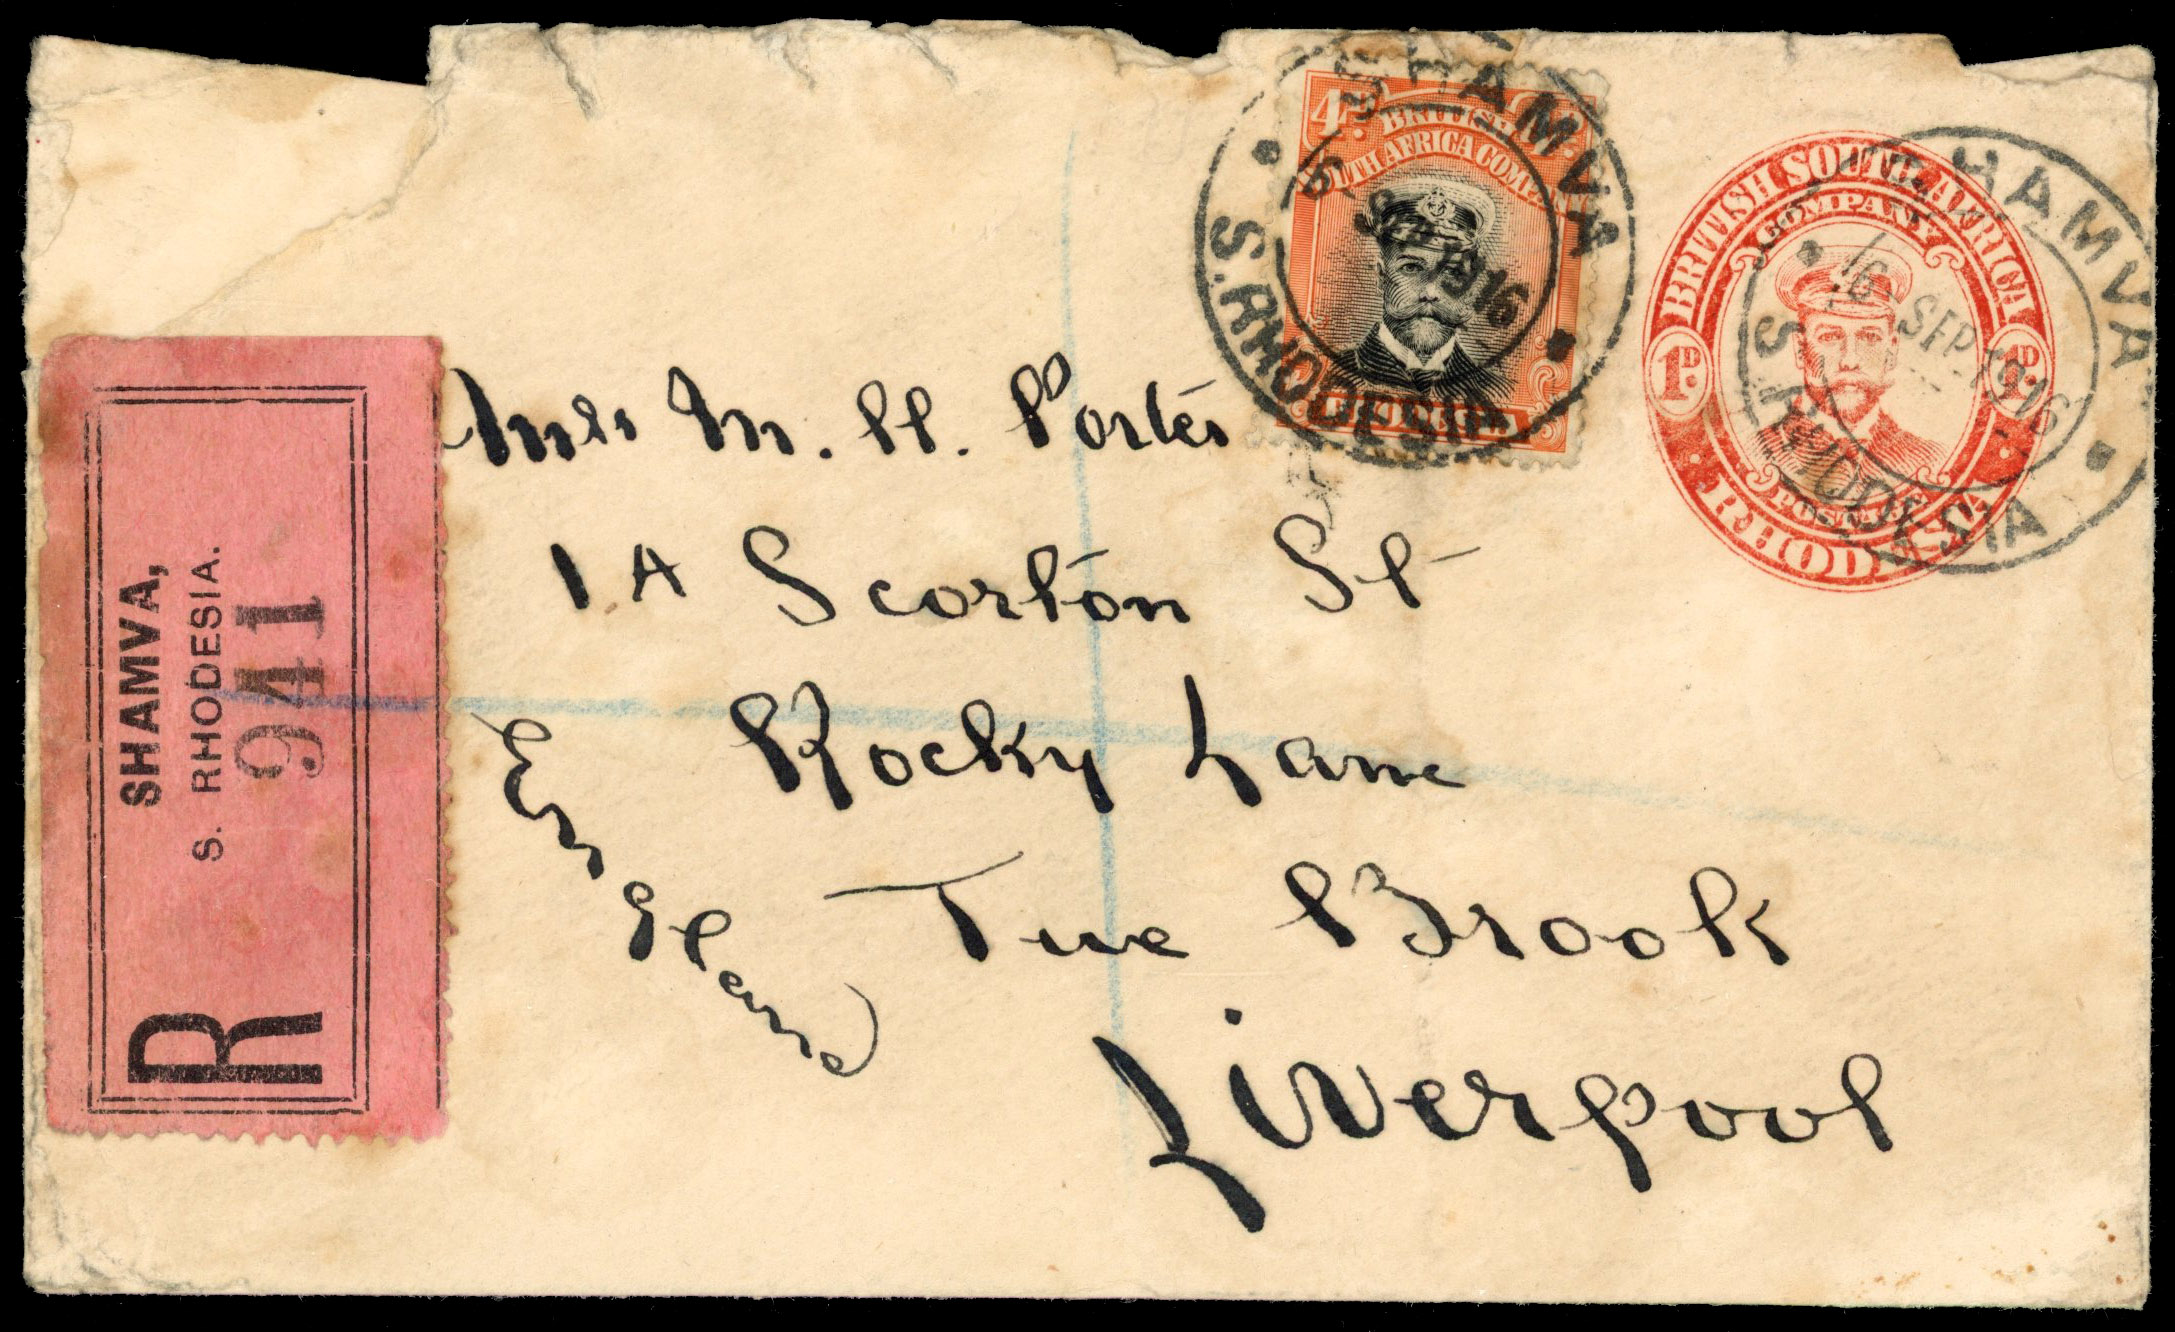 4D.
BRITISH
SOUTH AFRICA COMPANY
RHODESIA
SHAMVA
SEP 1916
S. RHODESIA
BRITISH SOUTH AFRICA
COMPANY
1D.
1D.
POSTAGE
RHODESIA
SHAMVA
16 SEP 1916
S. RHODESIA
SHAMVA,
S. RHODESIA.
941
R
Miss M. H. Porter
1A Scorton St
Rocky Lane
Tue Brook
Liverpool
England